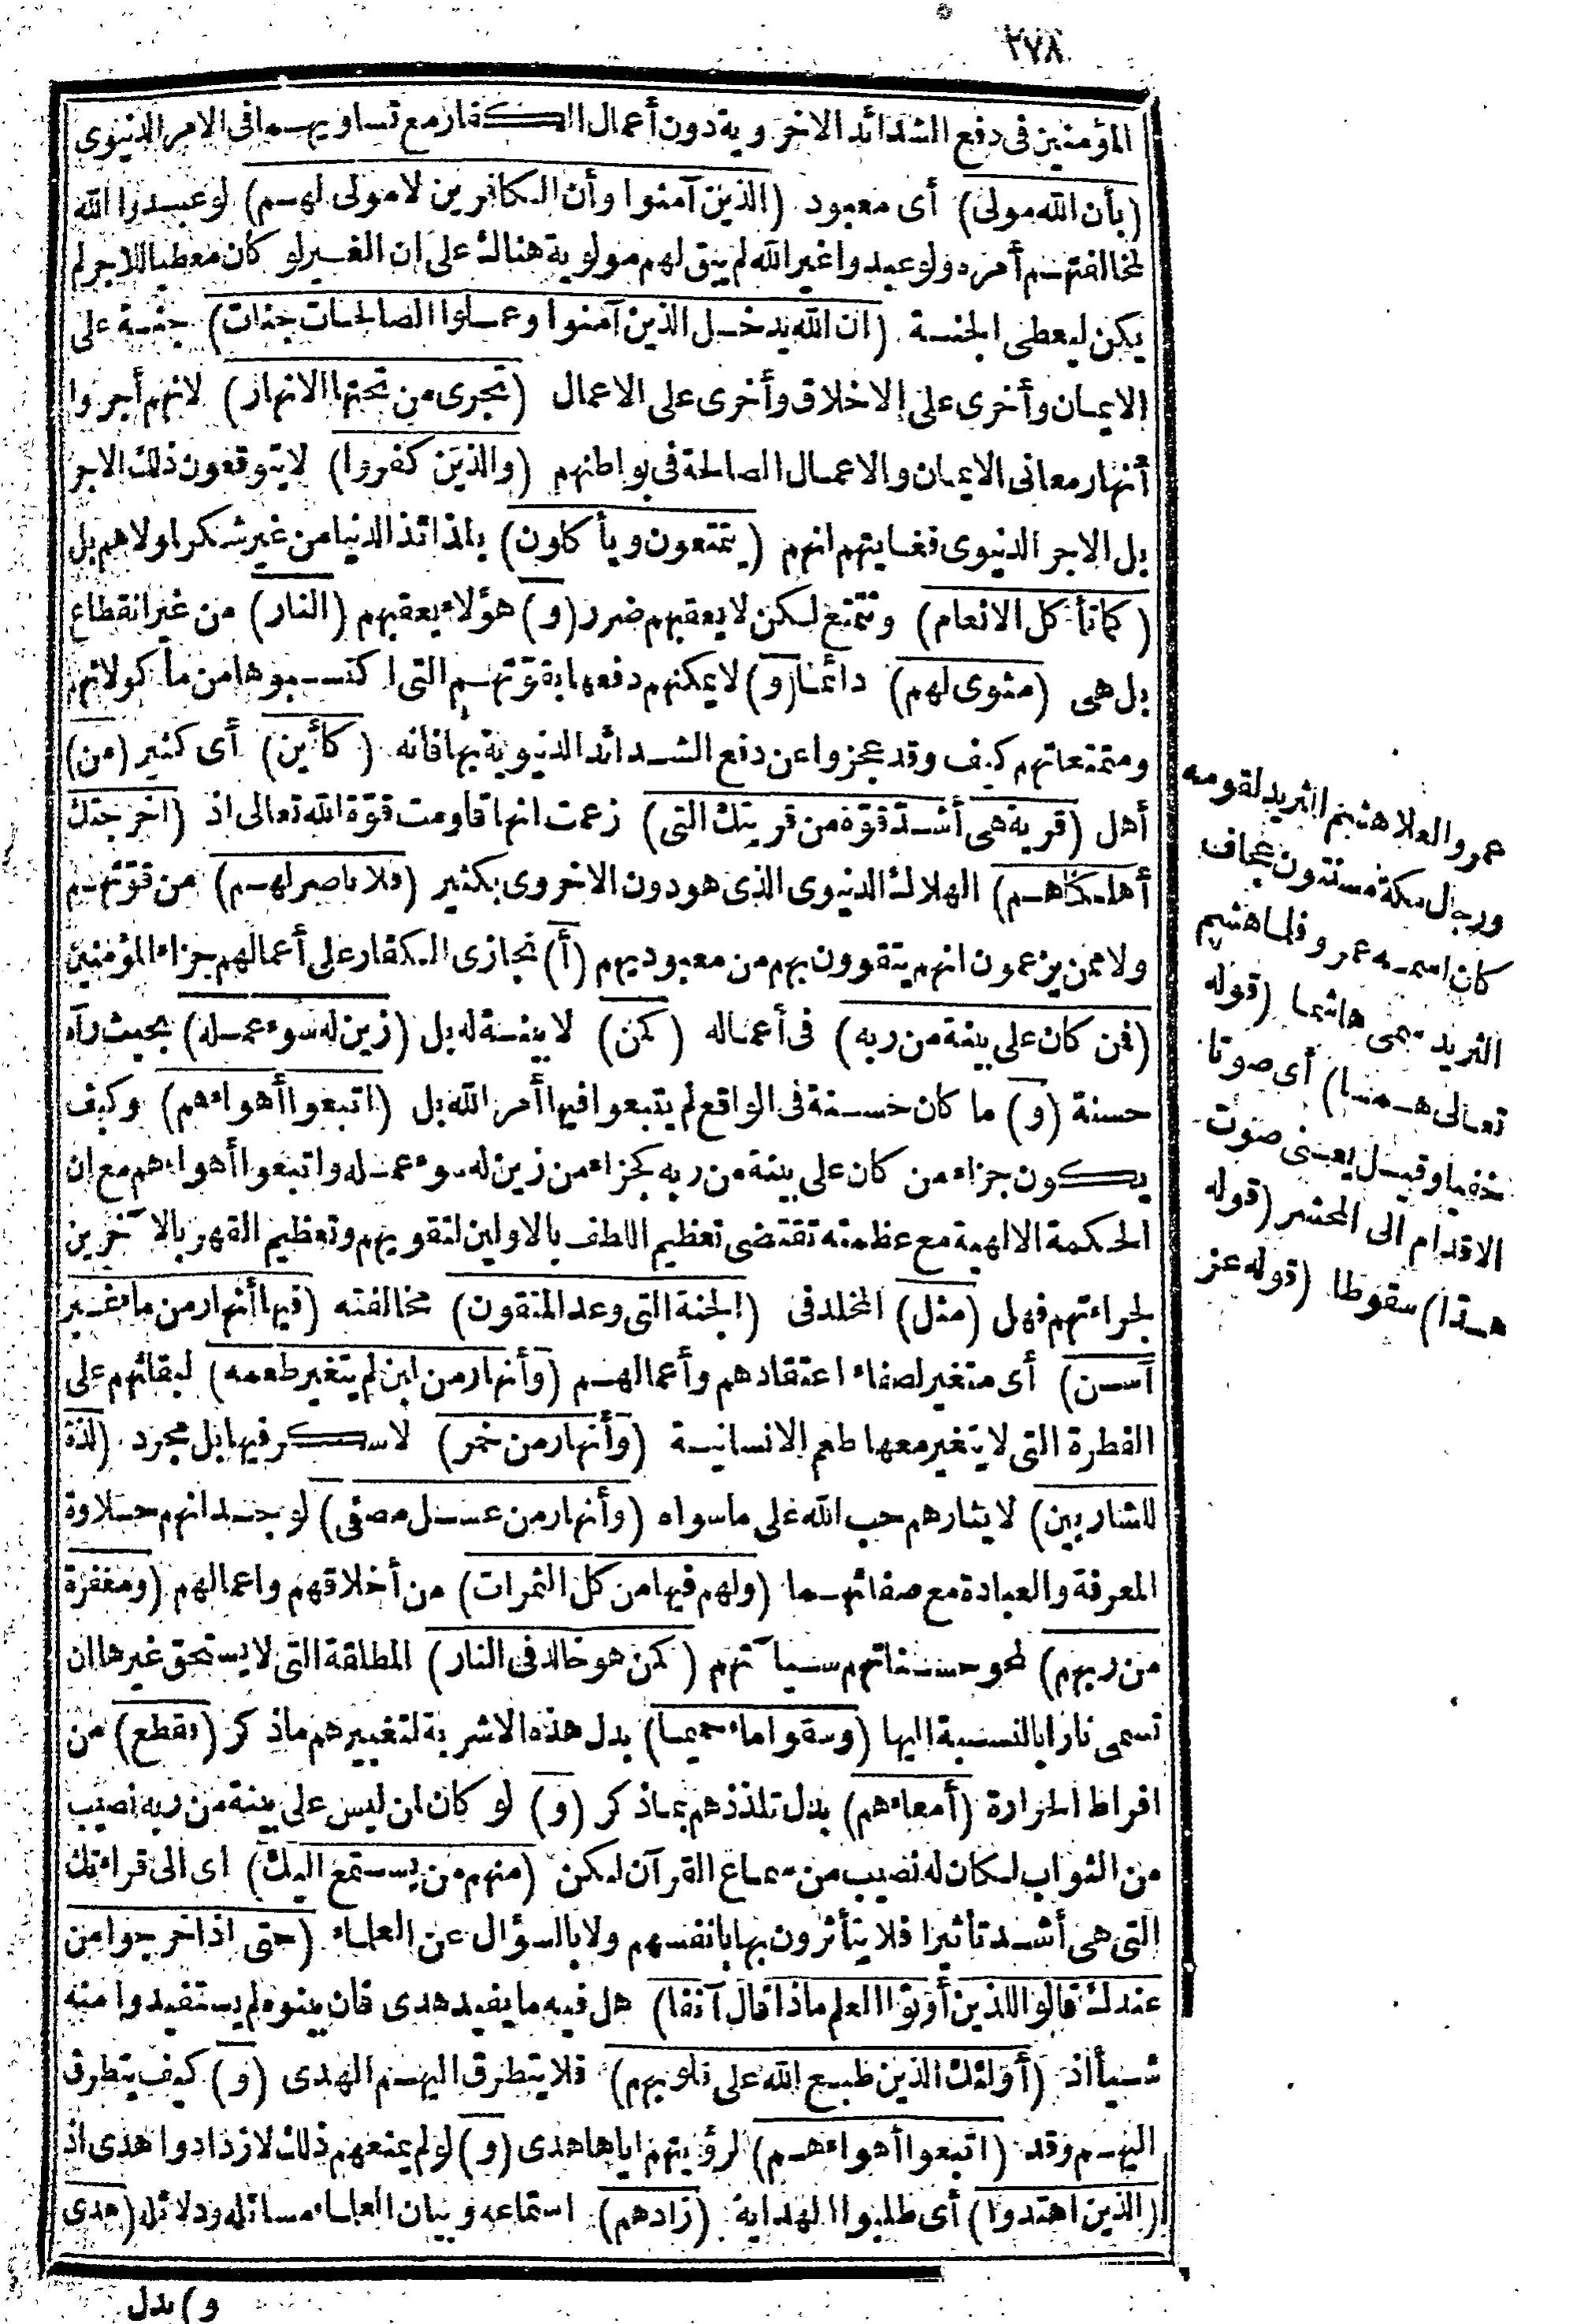 ٢٧٨
المؤمنين في دفع الشدائد الاخروية دون أعمال الكفار مع تساويهما في الامر الدنيوى
(بأن الله مولى) أى معبود (الذين آمنوا وأن الكافرين لا مولى لهم) لو عبدوا الله
لمخالفتهم أمره ولو عبدوا غير الله لم يبق لهم مولوية هنالك على ان الغير لو كان معطيا للاجر لم
يكن ليعطى الجنسة (ان الله يدخل الذين آمنوا وعملوا الصالحات جنات) جنة على
الايمان وأخرى على الاخلاق وأخرى على الاعمال (تجرى من تحتها الانهار) لانهم أجروا
أنهار معانى الايمان والاعمال الصالحة في بواطنهم (والذين كفروا) لا يتوقعون ذلك الاجر
بل الاجر الدنيوى فغايتهم انهم (يتمتعون ويأكلون) بلذائذ الدنيا من غير شكر لمولاهم بل
(كما تأكل الانعام) وتتمتع لكن لا يعقبهم ضرر (و) هؤلاء يعقبهم (النار) من غير انقطاع
بل هى (مثوى لهم) دائما (و) لا يمكنهم دفعها بقوّتهم التى اكتسبوها من مأكولاتهم
ومتمتعاتهم كيف وقد عجزوا عن دفع الشدائد الدنيوية بها فانه (كأين) أى كثير (من)
أهل (قرية هى أشدّ قوّة من قريتك التى) زعمت انها قاومت قوّة الله تعالى اذ (اخرجتك
أهلكناهم) الهلاك الدنيوى الذى هو دون الاخروى بكثير (فلا ناصر لهم) من قوّتهم
ولا ممن يزعمون انهم يتقوون بهم من معبوديهم (أ) نجازى الكفار على أعمالهم جزاء المؤمنين
(فمن كان على بينة من ربه) فى أعماله (كمن) لا بينة له بل (زين له سوء عمله) بحيث رآه
حسنة (و) ما كان حسنة فى الواقع لم يتبعوا فيها أمر الله بل (اتبعوا أهواءهم) وكيف
يكون جزاء من كان على بينة من ربه كجزاء من زين له سوء عمله واتبعوا أهواءهم مع ان
الحكمة الالهية مع عظمته تقتضى تعظيم اللطف بالاولين لتقويهم وتعظيم القهر بالآخرين
لجراءتهم فهل (مثل) المخلد فى (الجنة التى وعد المتقون) مخالفته (فيها أنهار من ماء غير
آسن) أى متغير لصفاء اعتقادهم وأعمالهم (وأنهار من لبن لم يتغير طعمه) لبقائهم على
الفطرة التى لا يتغير معها طعم الانسانية (وأنهار من خمر) لا سكر فيها بل مجرد (لذة
للشاربين) لايثارهم حب الله على ما سواه (وأنهار من عسل مصفى) لوجدانهم حلاوة
المعرفة والعبادة مع صفائهما (ولهم فيها من كل الثمرات) من أخلاقهم واعمالهم (ومغفرة
من ربهم) لمحو حسناتهم سيآتهم (كمن هو خالد فى النار) المطلقة التى لا يستحق غيرها ان
تسمى نارا بالنسبة اليها (وسقوا ماء حميما) بدل هذه الاشربة لتغييرهم ما ذكر (فقطع) من
افراط الحرارة (أمعاءهم) بدل تلذذهم بما ذكر (و) لو كان لمن ليس على بينة من ربه نصيب
من الثواب لكان له نصيب من سماع القرآن لكن (منهم من يستمع اليك) اى الى قراءتك
التى هى أشد تأثيرا فلا يتأثرون بها بانفسهم ولا بالسؤال عن العلماء (حتى اذا خرجوا من
عندك قالوا للذين أوتوا العلم ماذا قال آنفا) هل فيه ما يفيد هدى فان بينوه لم يستفيدوا منه
شيأ اذ (أولئك الذين طبع الله على قلوبهم) فلا يتطرق اليهم الهدى (و) كيف يتطرق
اليهم وقد (اتبعوا أهواءهم) لرؤيتهم اياها هدى (و) لو لم يمنعهم ذلك لازدادوا هدى اذ
(الذين اهتدوا) أى طلبوا الهداية (زادهم) استماعه وبيان العلماء مسائله ودلائله (هدى
و) بدل
عمرو العلا هشم الثريد لقومه
ورجال مكة مسنتون عجاف
كان اسمه عمرو فلما هشم
الثريد سمى هاشما (قوله
تعالى همسا) أى صوتا
خفيا وقيل يعنى صوت
الاقدام الى المحشر (قوله
هدّا) سقوطا (قوله عز